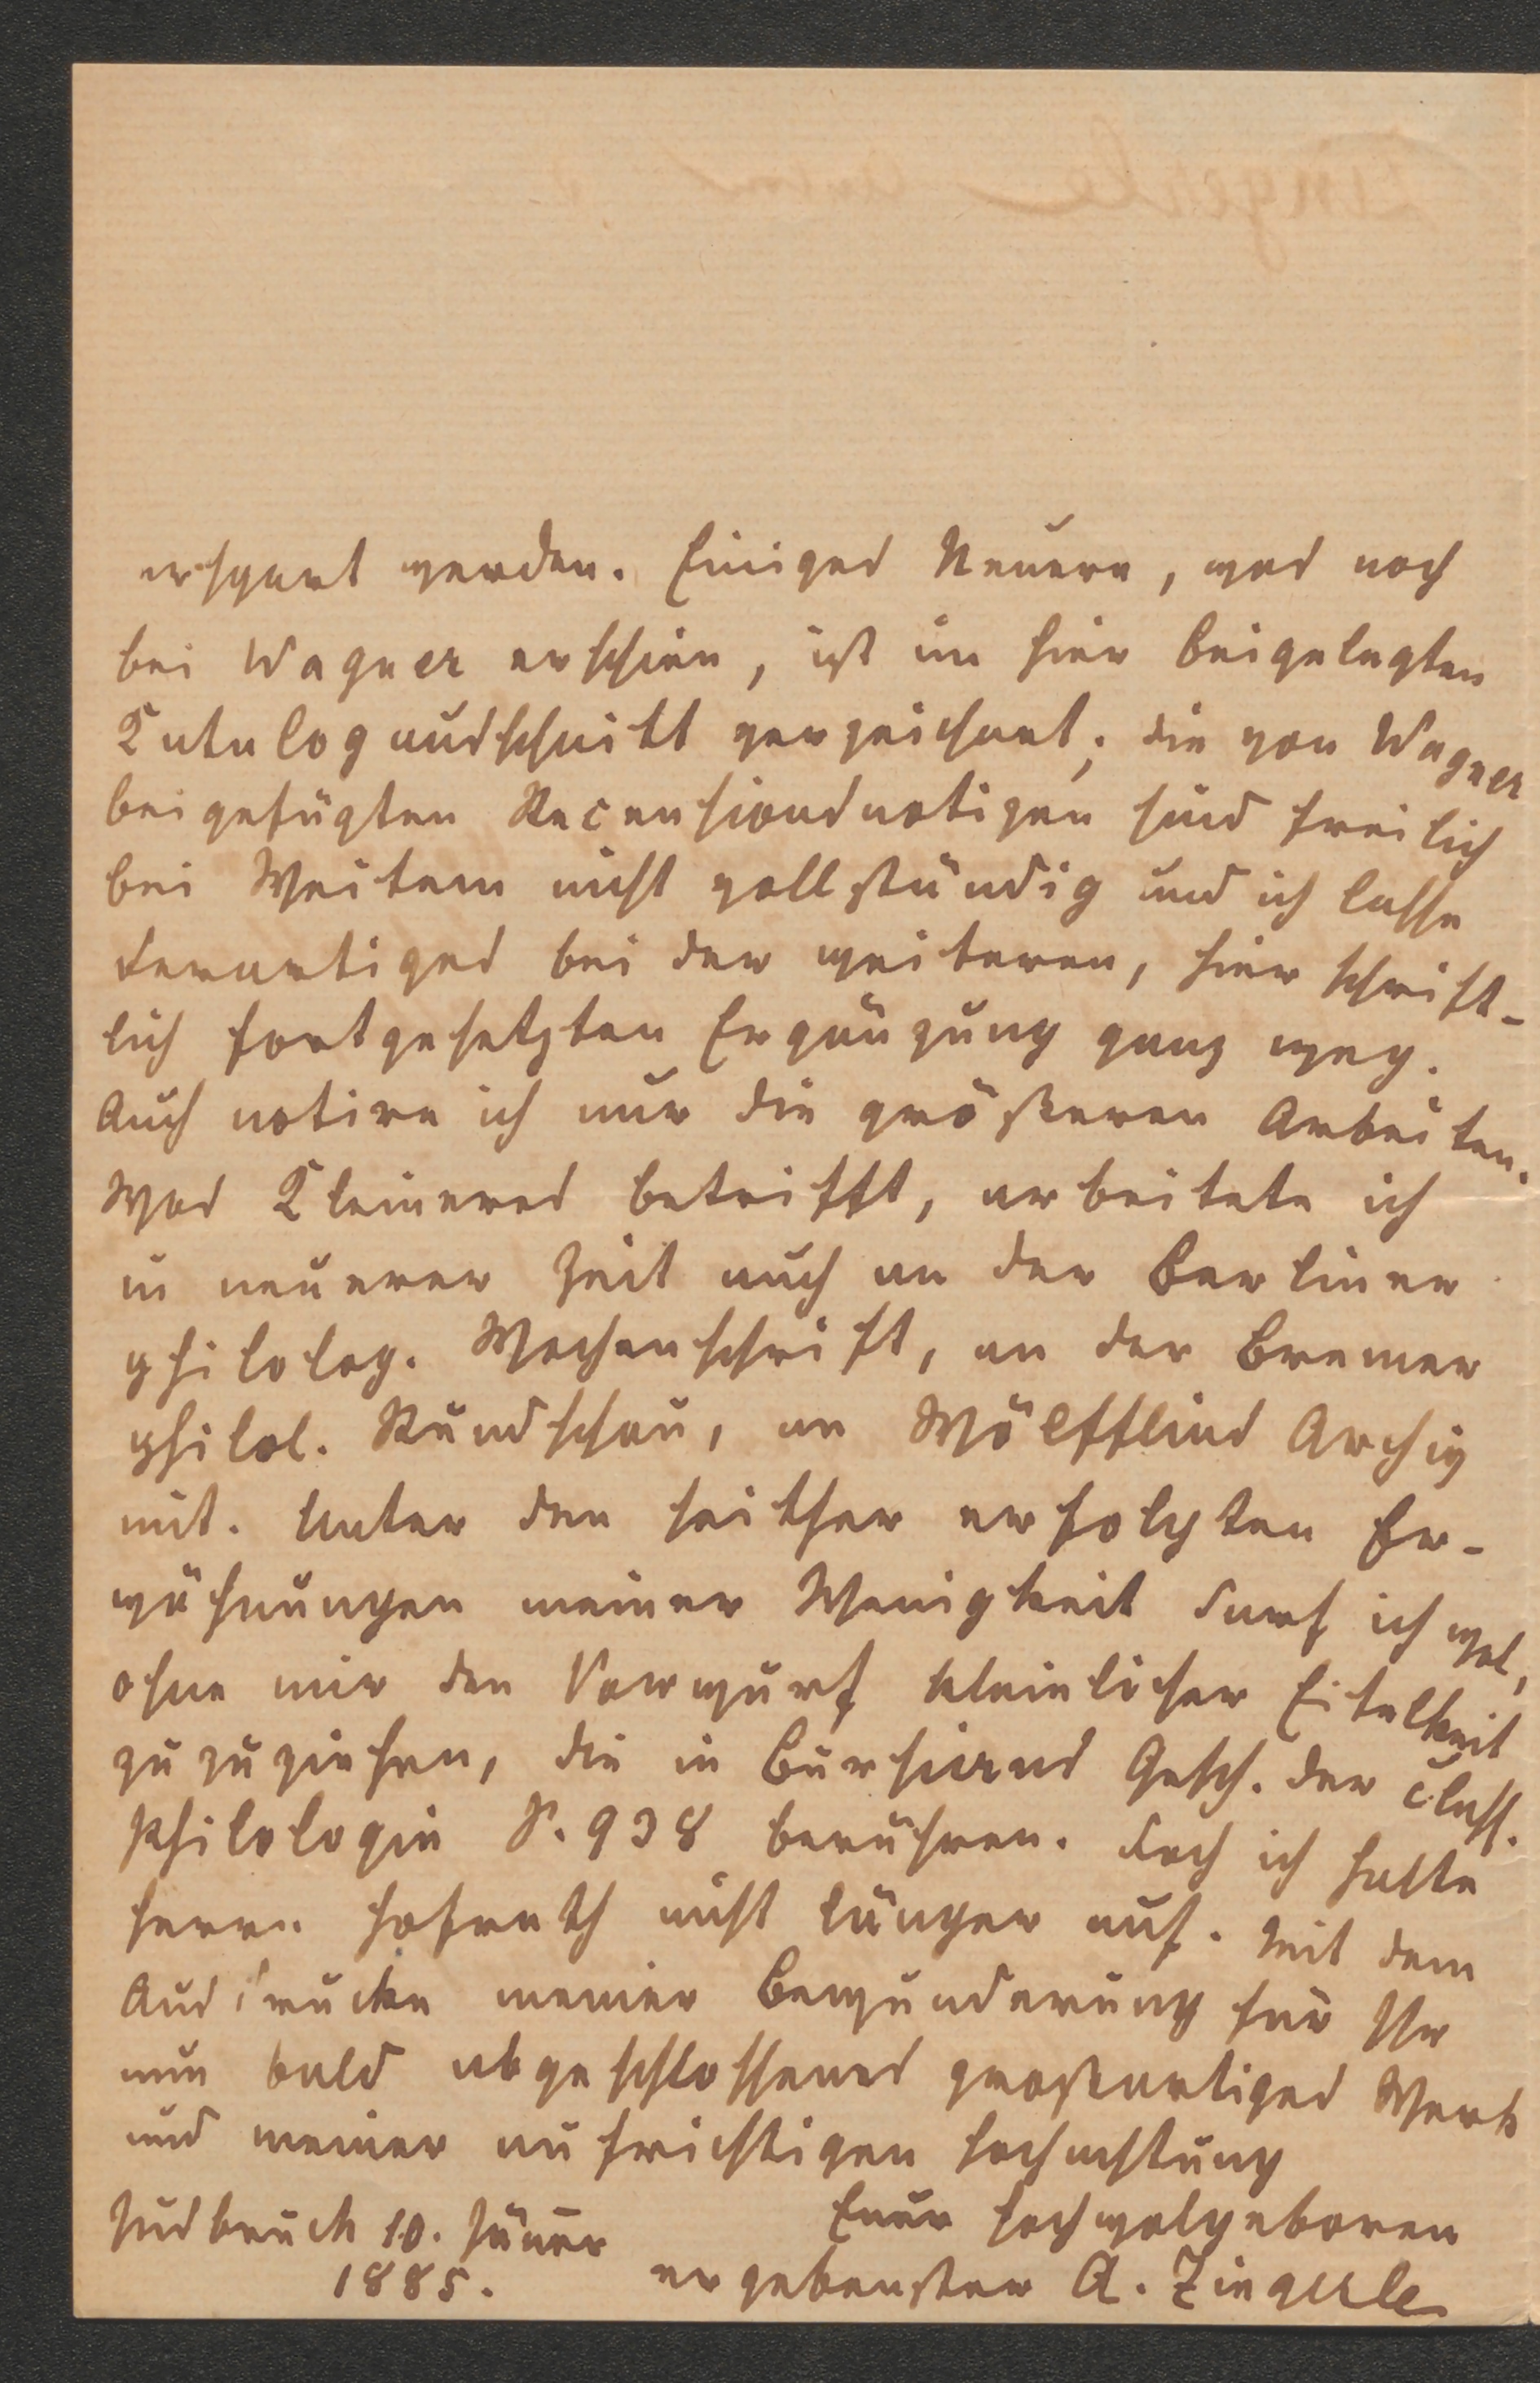 erspart werden. Einiges Neuere, was noch
bei Wagner erschien, ist im hier beigelegten
Katalogausschnitt verzeichnet; die von Wagner
beigefügten Recensionsnotizen sind freilich
bei Weitem nicht vollständig und ich lasse
derartiges bei der weiteren, hier schrift-
lich fortgesetzten Ergänzung ganz weg.
Auch notire ich nur die größeren Arbeiten.
Was Kleineres betrifft, arbeitete ich
in neuerer Zeit auch an der Berliner
philolog. Wochenschrift, an der Bremer
philol. Rundschau, an Wölfflins Archiv
mit. Unter den seither erfolgten Er-
wähnungen meiner Wenigkeit darf ich wol,
ohne mir den Vorwurf kleinlicher Eitelkeit
zuzuziehen, die in Bursians Gesch. der class.
Philologie S. 938 berühren. Doch ich halte
Herrn Hofrath nicht länger auf. Mit dem
Ausdrucke meiner Bewunderung für Ihr
nun bald abgeschlossenes großartiges Werk
und meiner aufrichtigen Hochachtung
Euer Hochwolgeboren
Insbruck 10. Jänner
1885.
ergebenster A. Zingerle